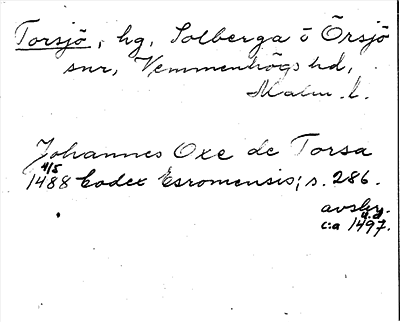 Torsjö, hg, Solberga o Örsjö
snr, Vemmenhögs hd,
Malm. l.
Johannes Oxe de Torsa
4/5
1488 Codex Esromensis, s. 286.
avskr.
c:a 1497.